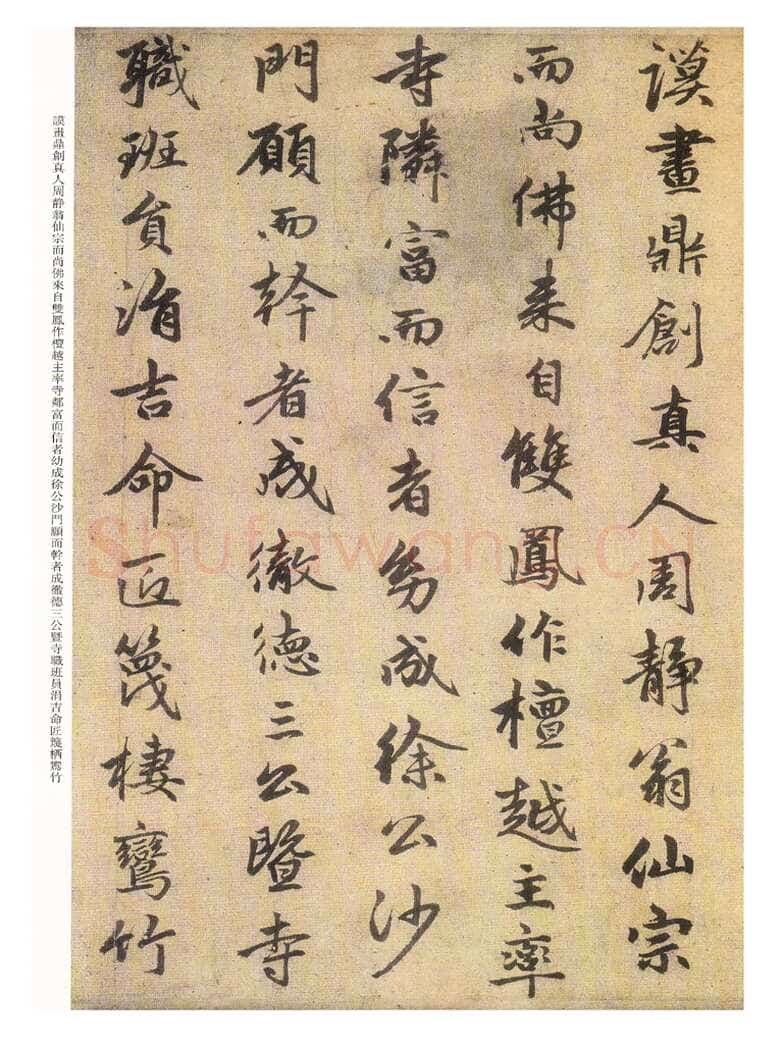 謨畫鼎創真人周靜翁仙宗
而尚佛来自雙鳳作檀越主率
寺隣富而信者幼成徐公沙
門願而幹者成徹德三公暨寺
職班負涓吉命匠篾棲鸞竹
謨畫鼎創真人周靜翁仙宗而尚佛來自雙鳳作檀越主率寺鄰富而信者幼成徐公沙門願而幹者成徹德三公暨寺職班員涓吉命匠篾栖鸞竹
Shufawang.CN